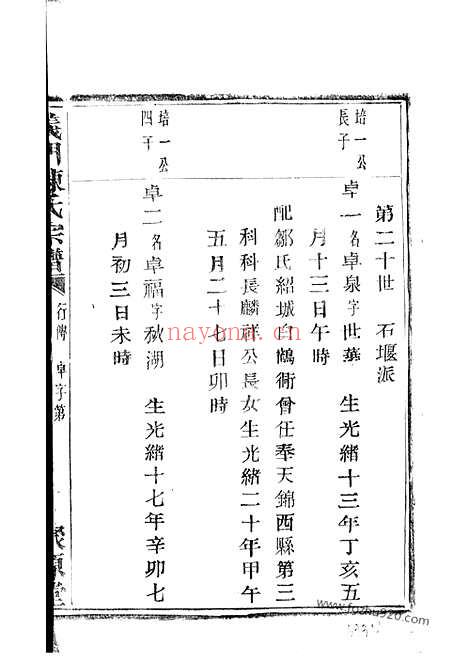 第二十世 石堰派
培一公
長子
卓一名卓泉字世華 生光緒十三年丁亥五
月十三日午時
配鄒氏紹城白鶴衖曾任奉天錦西縣第三
科科長麟祥公長女生光緒二十年甲午
五月二十七日卯時
培一公
四子
卓二名卓福字秋湖 生光緒十七年辛卯七
月初三日未時
義門陳氏宗譜
行傳 卓字第
聚原堂
nayona.cn
www.fozhu920.com